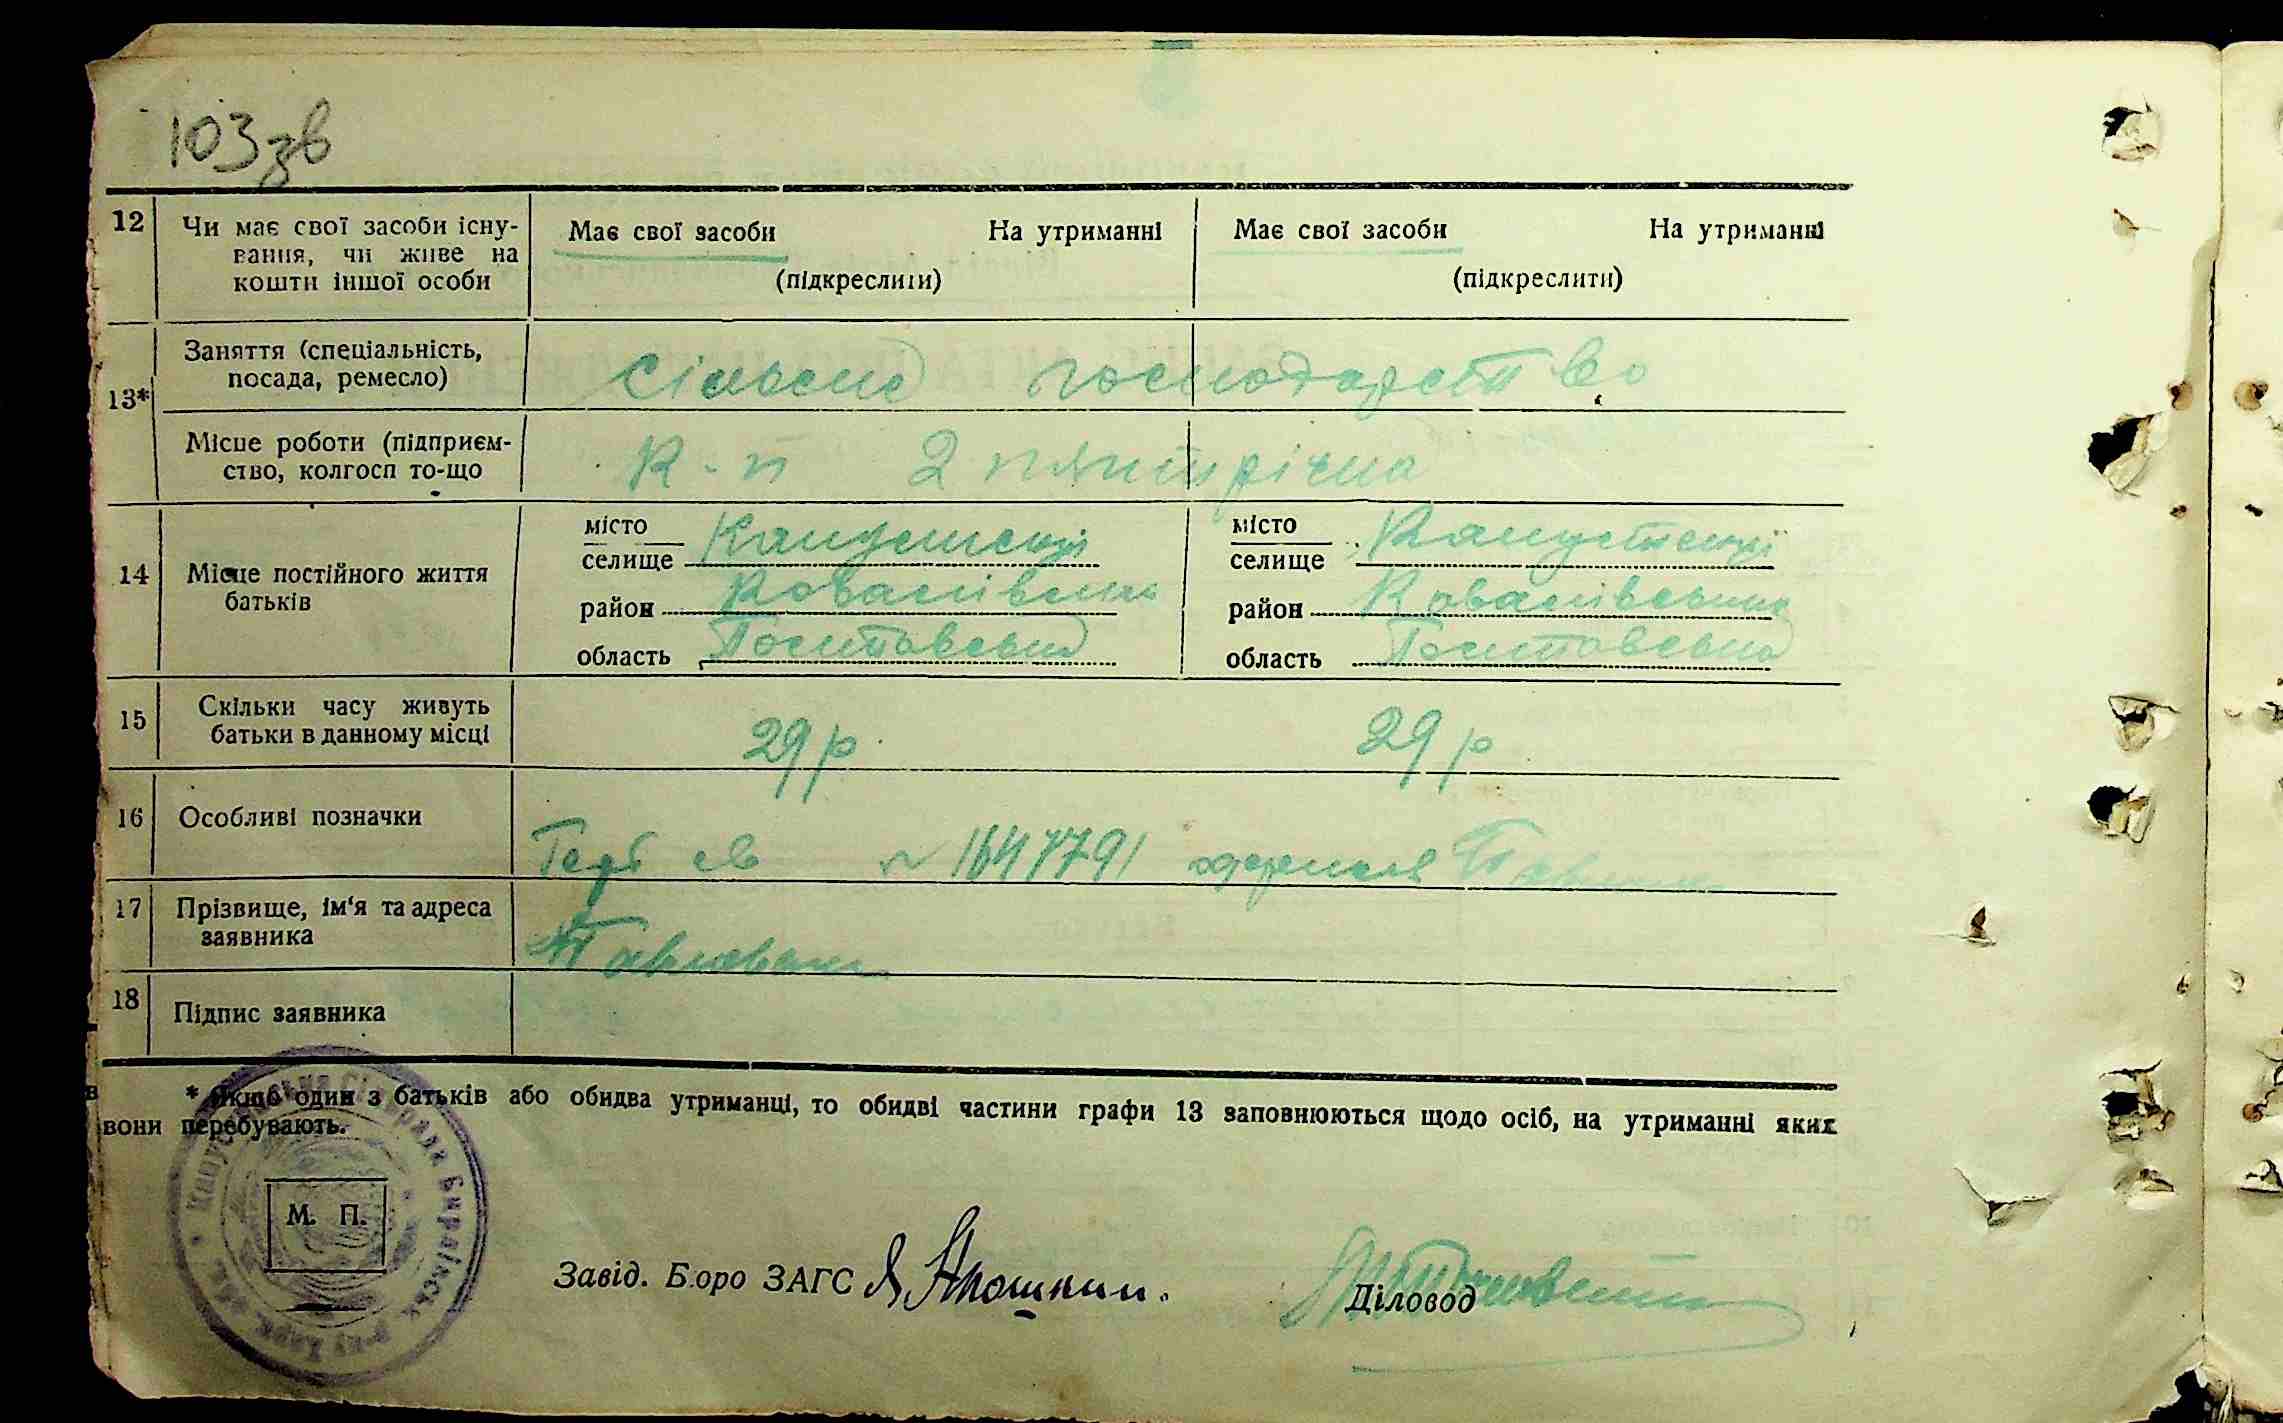 103зв
12 Чи має свої засоби існу-
вання, чи живе на
кошти іншої особи
Має свої засоби На утриманні
(підкреслити)
Має свої засоби На утриманні
(підкреслити)
13*
Заняття (спеціальність,
посада, ремесло)
Сільське господарство
Місце роботи (підприєм-
ство, колгосп то-що
К-п 2 пятирічка
14 Місце постійного життя
батьків
місто
селище Капустенці
район Ковалівський
область Полтавська
місто
селище Капустенці
район Ковалівський
область Полтавська
15 Скільки часу живуть
батьки в данному місці
29 р. 29 р
16 Особливі позначки
№ 1647791
17 Прізвище, ім'я та адреса
заявника
18 Підпис заявника
* Якщо один з батьків або обидва утриманці, то обидві частини графи 13 заповнюються щодо осіб, на утриманні яких
вони перебувають.
М. П.
Завід. Бюро ЗАГС
Діловод